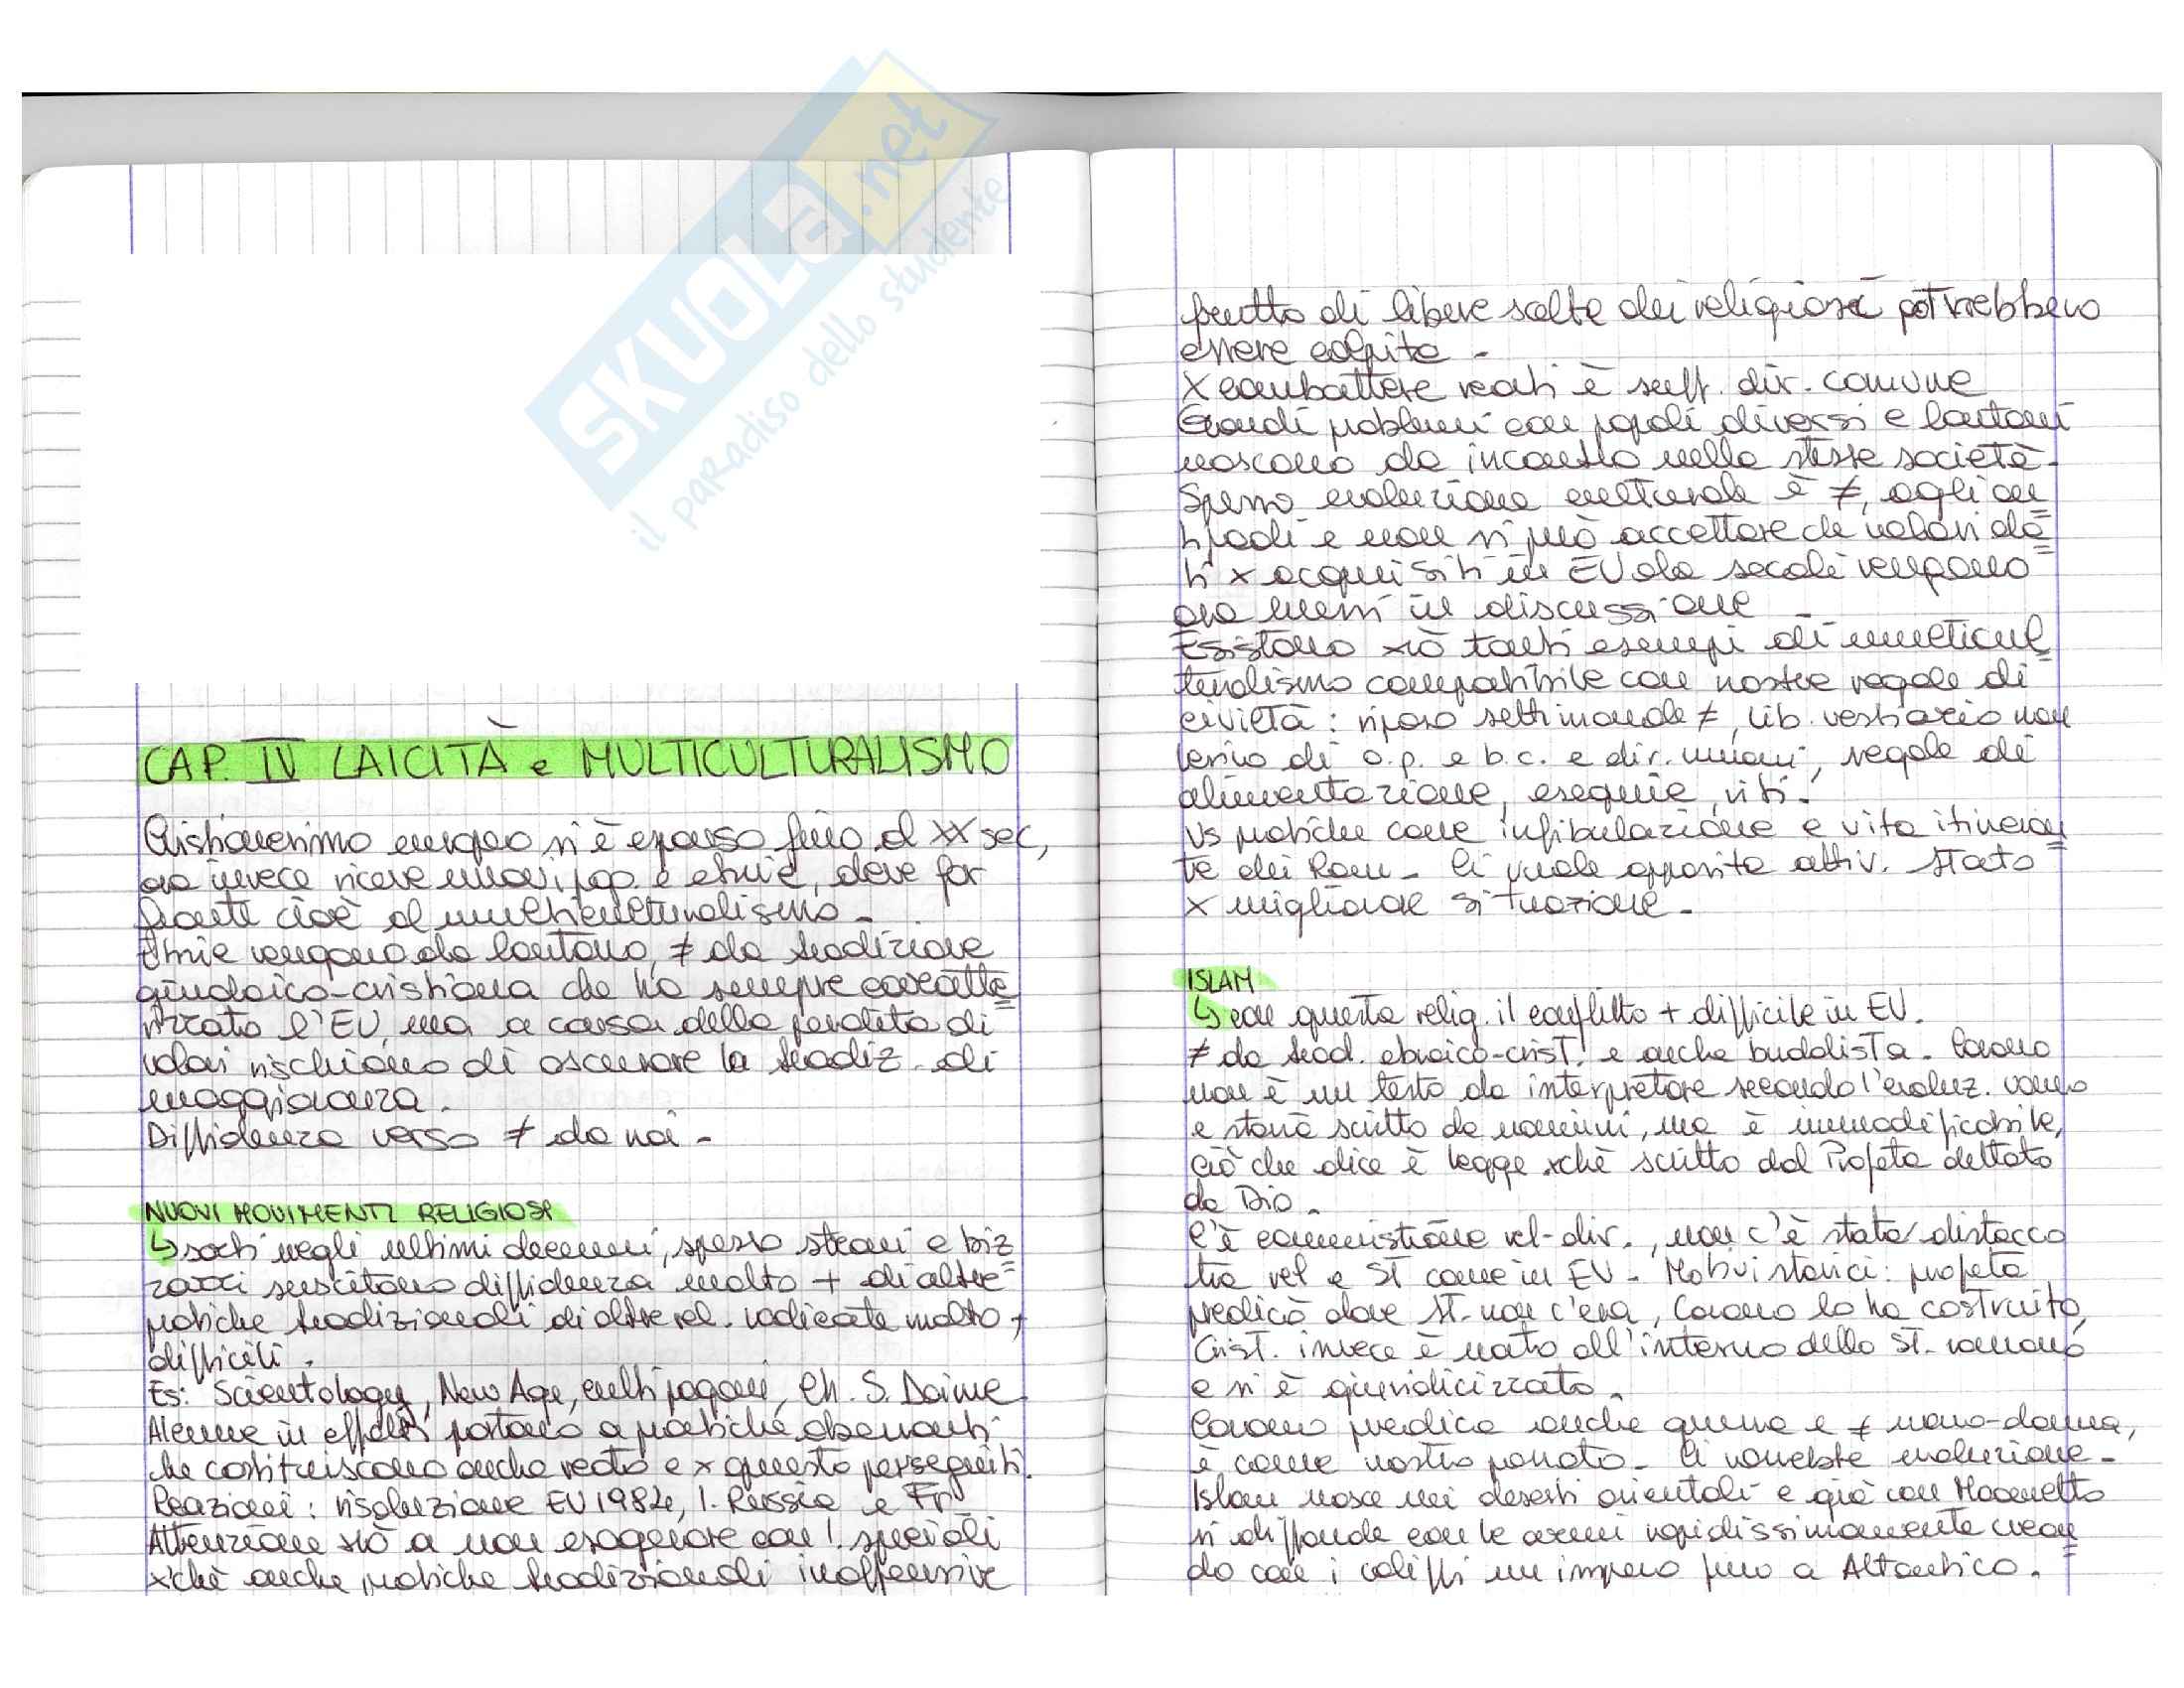 SKUOLA.net
il paradiso dello studente
CAP. IV LAICITÀ e MULTICULTURALISMO
Cristianesimo europeo si è espanso fino al XX sec,
ora invece riceve nuovi pop. e etnie, deve far
fronte cioè al multiculturalismo.
Etnie vengono da lontano, ≠ da tradizione
giudaico-cristiana che ha sempre caratte=
rizzato l'EU, ma a causa della perdita di
valori rischiano di oscurare la tradiz. di
maggioranza.
Diffidenza verso ≠ da noi.
NUOVI MOVIMENTI RELIGIOSI
↳ sorti negli ultimi decenni, spesso strani e biz=
zarri suscitano diffidenza molto + di altre
pratiche tradizionali di altre rel. radicate molto +
difficili.
Es: Scientology, New Age, culti pagani, Ch. S. Daime
Alcune in effetti portano a pratiche aberranti
che costituiscono anche reato e x questo perseguiti.
Reazioni: risoluzione EU 1984, l. Russia e Fr
Attenzione xò a non esagerare con l. speciali
x'chè anche pratiche tradizionali inoffensive
frutto di libere scelte dei religiosi potrebbero
essere colpite.
x combattere reati è suff. dir. comune
Grandi problemi con popoli diversi e lontani
nascono da incontro nella stessa società.
Spesso evoluzione culturale è ≠, agli an=
tipodi e non si può accettare che valori da=
ti x acquisiti in EU da secoli vengano
ora messi in discussione
Esistono xò tanti esempi di multicul=
turalismo compatibile con nostre regole di
civiltà: riposo settimanale ≠, lib. vestiario non
lesivo di o.p. e b.c. e dir. umani, regole di
alimentazione, esequie, riti.
Vs pratiche come infibulazione e vita itineran=
te dei Rom. Ci vuole apposita attiv. Stato
x migliorare situazione.
ISLAM
↳ con questa relig. il conflitto + difficile in EU.
≠ da trad. ebraico-crist. e anche buddista. Corano
non è un testo da interpretare secondo l'evoluz. uomo
e storia scritto da uomini, ma è immodificabile,
ciò che dice è legge xchè scritto dal Profeta dettato
da Dio.
C'è commistione rel-dir., non c'è stato distacco
tra rel e St come in EU. Motivi storici: profeta
predicò dove St. non c'era, Corano lo ha costruito,
Crist. invece è nato all'interno dello St. romano
e si è giuridicizzato.
Corano predica anche guerra e ≠ uomo-donna,
è come nostro passato. Ci vorrebbe evoluzione.
Islam nasce nei deserti orientali e già con Maometto
si diffonde con le armi rapidissimamente crean=
do con i califfi un impero fino a Atlantico.